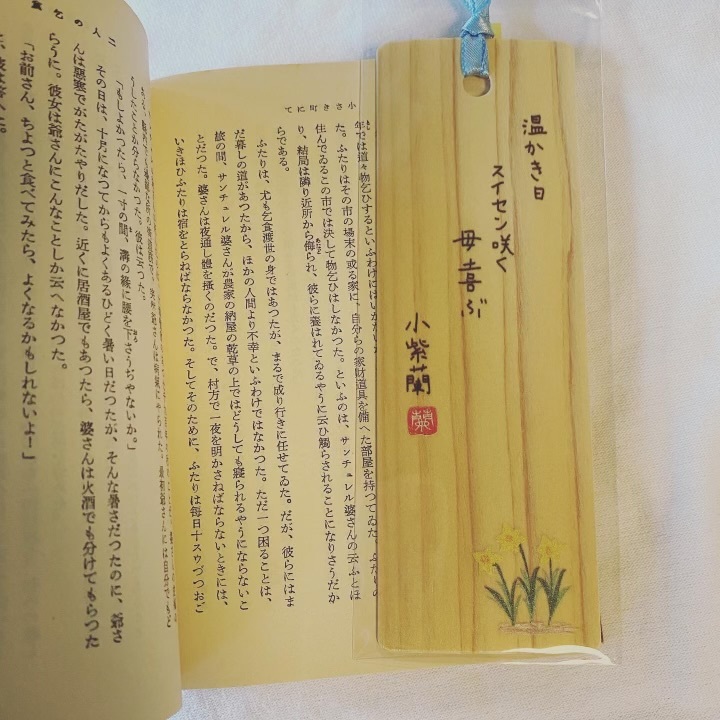 温かき日
スイセン咲く
母喜ぶ
小紫蘭
蘭
小さき町にて
年では道々物乞ひするといふわけにはいかない
た。ふたりはその市の場末の或る家に、自分らの家財道具を備へた部屋を持つてゐた。ふたりの
住んでゐるこの市では決して物乞ひはしなかつた。といふのは、サンチュレル婆さんの云ふとほ
り、結局は隣り近所から侮られ、彼らに養はれてゐるやうに云ひ觸らされることになりさうだか
らである。
ふたりは、尤も乞食渡世の身ではあつたが、まるで成り行きに任せてゐた。だが、彼らにはま
だ暮しの道があつたから、ほかの人間より不幸といふわけではなかつた。ただ一つ困ることは、
旅の間、サンチュレル婆さんが農家の納屋の乾草の上ではどうしても寢られるやうにならないこ
とだつた。婆さんは夜通し體を搔くのだつた。で、村方で一夜を明かさねばならないときには、
いきほひふたりは宿をとらねばならなかつた。そしてそのために、ふたりは毎日十スウづつおご
二人の乞食
うしたことか分らなかつた。彼は云つた。
「もしよかつたら、一寸の間、溝の緣に腰を下さうぢやないか。」
その日は、十月になつてからもよくあるひどく暑い日だつたが、そんな暑さだつたのに、爺さ
んは惡寒でがたがたやりだした。近くに居酒屋でもあつたら、婆さんは火酒でも分けてもらつた
らうに。彼女は爺さんにこんなことしか云へなかつた。
「お前さん、ちよつと食べてみたら、よくなるかもしれないよ！」